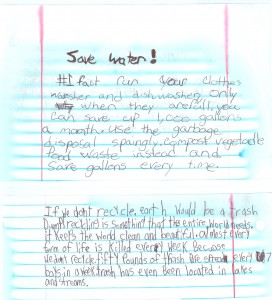 Save water!
#1 fact run your clothes
washer and dishwasher only
when they are full, you
can save up 1,000 gallons
a month. Use the garbage
disposal spaungly. compost vegetable
food waste instead and
Save gallons every time.
If we dont recycle. earth would be a trash
Dump recycling is somethin that the entire world needs.
it keeps the world clean and beautiful. almost every
form of life is killed every week Because
we dont recycle. fifty pounds of trash
bags in a week trash has even been located in lakes
and streams.